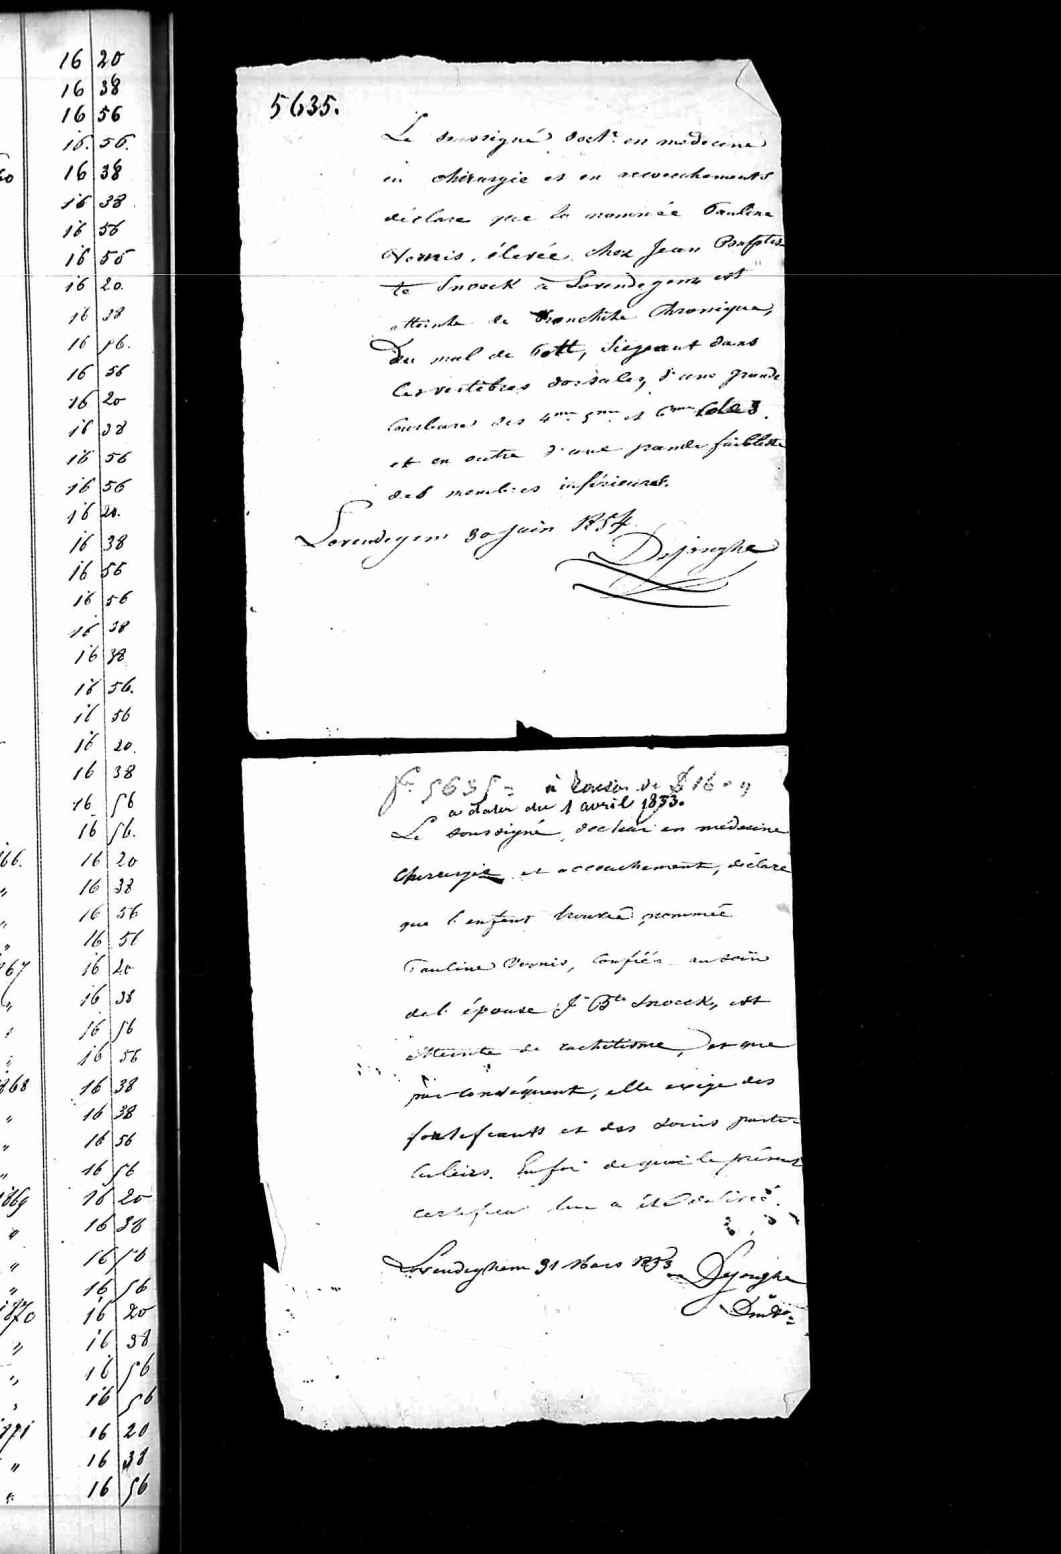 16 20
16 38
16 56
16. 56.
16 38
16 38
16 56
16 56
16 20.
16 38
16 56.
16 56
16 20
16 38
16 56
16 56
16 20.
16 38
16 56
16 56
16 38
16 38
16 56.
16 56
16 20.
16 38
16 56
16 56.
66. 16 20
" 16 38
" 16 56
" 16 56
67 16 20
" 16 38
" 16 56
" 16 56
868 16 38
" 16 38
" 16 56
" 16 56
869 16 20
" 16 38
" 16 56
" 16 56
1870 16 20
" 16 38
" 16 56
" 16 56
871 16 20
" 16 38
" 16 56
5635.
Le soussigné doctr. en médecine
en chirurgie et en accouchements
déclare que la nommée Pauline
Vernis, élevée chez Jean Baptis
te Snoeck à Lovendegem est
atteinte de Bronchite Chronique,
du mal de Pott, siégeant dans
les vertèbres dorsales, d'une grande
courbure des 4me 5me et 6me Côtes.
et en outre d'une grande faiblesse
des membres inférieures.
Lovendegem 30 juin 1854.
Dejonghe
5635 = à raison de 16
a dater du 1 avril 1853.
Le soussigné, docteur en médecine
Chirurgie et accouchement, déclare
que l'enfant trouvée nommée
Pauline Vernis, confiée au soin
de l'épouse J. Bte Snoeck, est
atteinte de rachitisme, et que
par conséquent, elle exige des
fortifiants et des soins parti=
culiers. En foi de quoi le présent
certificat lui a été délivré.
Lovendeghem 31 Mars 1853
Dejonghe